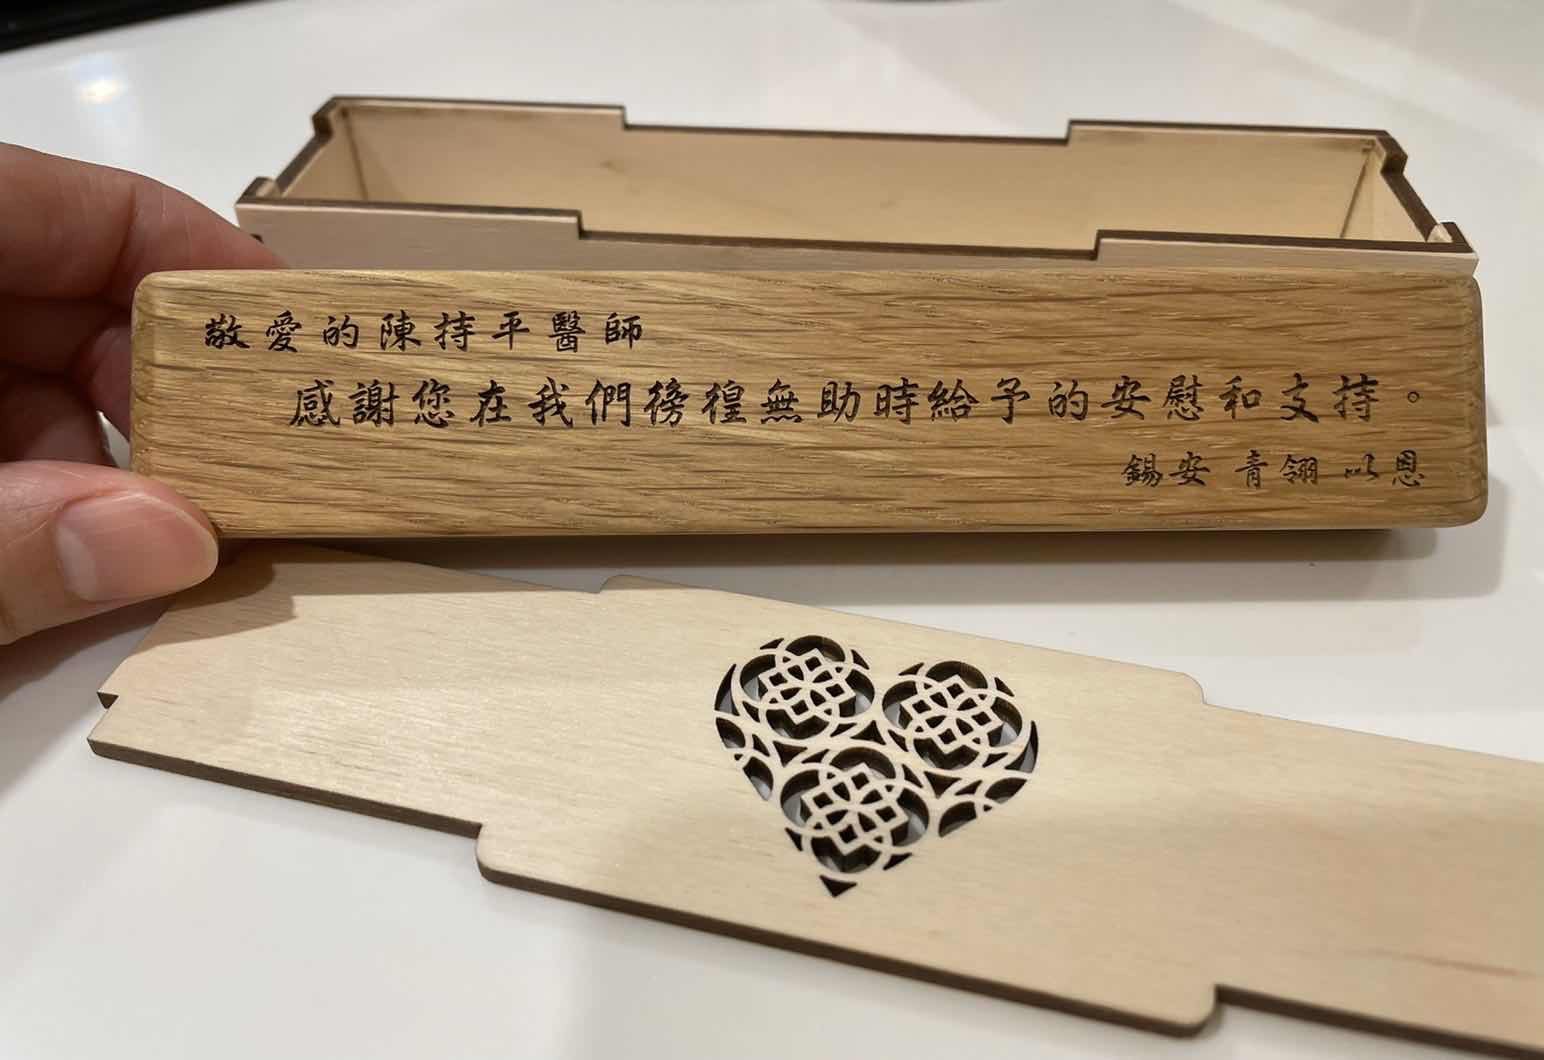 敬愛的陳持平醫師
感謝您在我們徬徨無助時給予的安慰和支持。
錫安 青翎 以恩